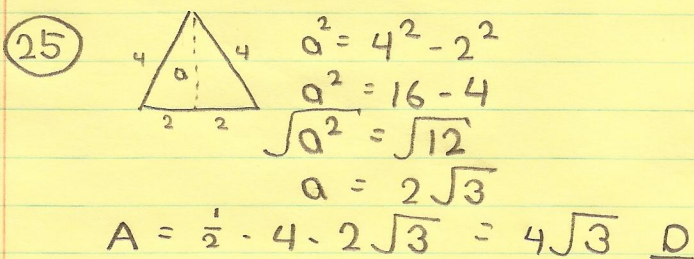 25
4 4 a² = 4² - 2²
a a² = 16 - 4
2 2 √a² = √12
a = 2√3
A = ½ · 4 · 2√3 = 4√3 D